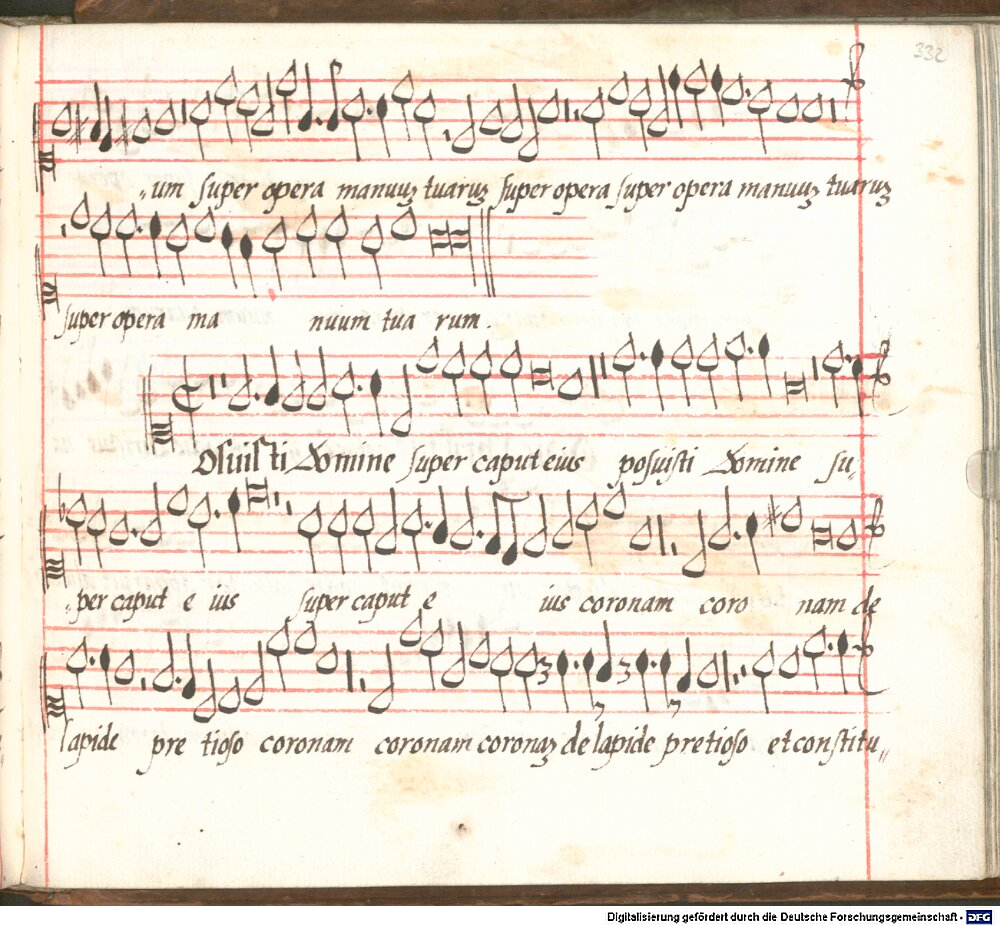 332
um super opera manuuʒ tuaruʒ super opera super opera manuuʒ tuaruʒ
super opera ma nuum tua rum.
Osuisti Domine super caput eius posuisti Domine su„
„per caput e ius super caput e ius coronam coro nam de
lapide pre tioso coronam coronam coronaʒ de lapide pretioso et constitu„
Digitalisierung gefördert durch die Deutsche Forschungsgemeinschaft - DFG